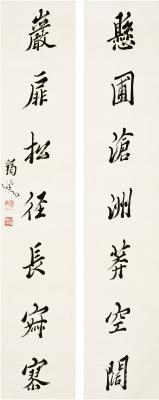 懸圃滄洲莽空闊
巖扉松徑長寂寥